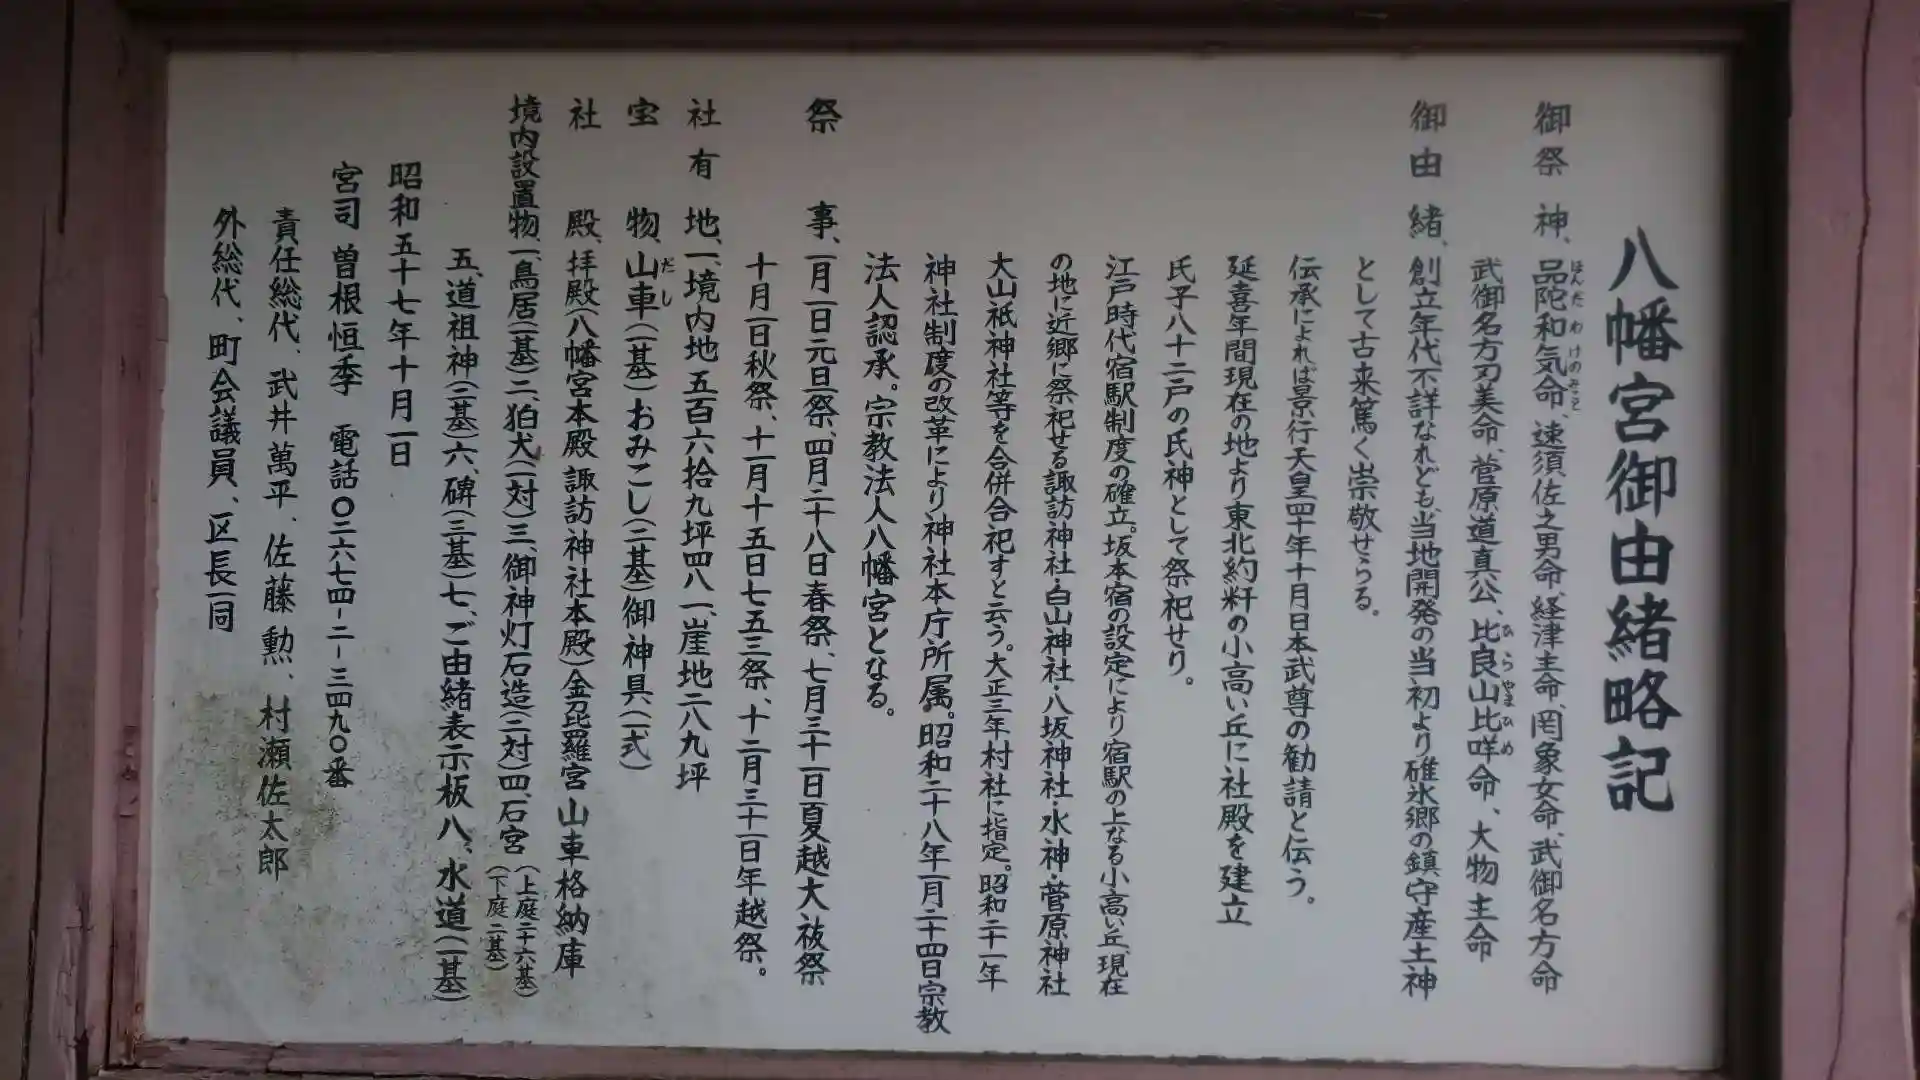 八幡宮御由緒略記
御祭神、品陀和気命、速須佐之男命、経津主命、罔象女命、武御名方命
武御名方刃美命、菅原道真公、比良山比咩命、大物主命
御由緒、創立年代不詳なれども、当地開発の当初より碓氷郷の鎮守産土神
として古来篤く崇敬せらる。
伝承によれば景行天皇四十年十月日本武尊の勧請と伝う。
延喜年間現在の地より東北約粁の小高い丘に社殿を建立
氏子八十二戸の氏神として祭祀せり。
江戸時代宿駅制度の確立。坂本宿の設定により宿駅の上なる小高い丘、現在
の地に近郷に祭祀せる諏訪神社・白山神社・八坂神社・水神・菅原神社
大山祇神社等を合併合祀すと云う。大正三年村社に指定。昭和二十一年
神社制度の改革により神社本庁所属。昭和二十八年一月二十四日宗教
法人認承。宗教法人八幡宮となる。
祭事、一月一日元旦祭、四月二十八日春祭、七月三十一日夏越大祓祭
十月一日秋祭、十一月十五日七五三祭、十二月三十一日年越祭。
社有地、一、境内地 五百六拾九坪四八 一、崖地二八九坪
宝物、山車(一基)おみこし(三基)御神具(一式)
社殿、拝殿(八幡宮本殿 諏訪神社本殿)金刀比羅宮 山車格納庫
境内設置物、一、鳥居(一基)二、狛犬(一対)三、御神灯石造(二対)四、石宮(上庭二十六基)(下庭 二基)
五、道祖神(三基)六、碑(三基)七、ご由緒表示板 八、水道(一基)
昭和五十七年十月一日
宮司 曽根恒季 電話〇二六七四-二-三四九〇番
責任総代、武井萬平、佐藤勲、村瀬佐太郎
外総代、町会議員、区長一同